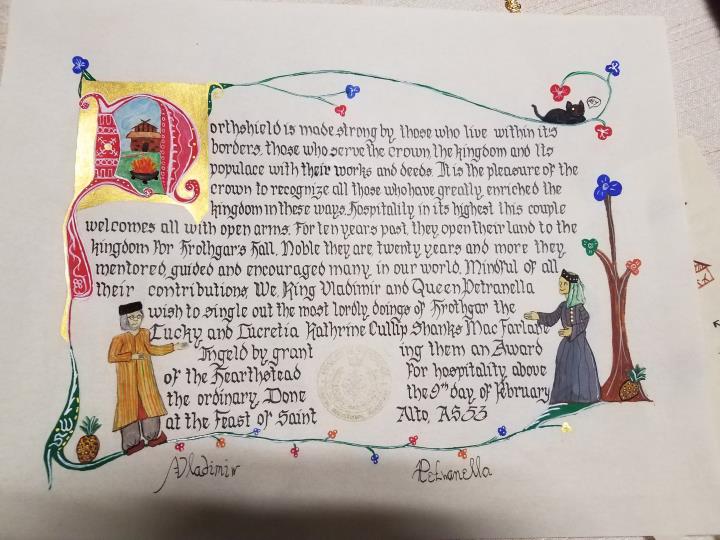 Northshield is made strong by those who live within its
borders, those who serve the crown, the kingdom and its
populace with their works and deeds. It is the pleasure of the
crown to recognize all those who have greatly enriched the
kingdom in these ways. Hospitality in its highest this couple
welcomes all with open arms. For ten years past, they open their land to the
kingdom for Hrothgar's Hall. Noble they are, twenty years and more they
mentored, guided and encouraged many in our world. Mindful of all
their contributions, We, King Vladimir and Queen Petranella
wish to single out the most lordly doings of Hrothgar the
Lucky and Lucretia Kathrine Cullip Shanks MacFarlane
Ingeld by granting them an Award
of the Hearthstead for hospitality above
the ordinary. Done the 9th day of February
at the Feast of Saint Alto, AS 53
Vladimir Petranella